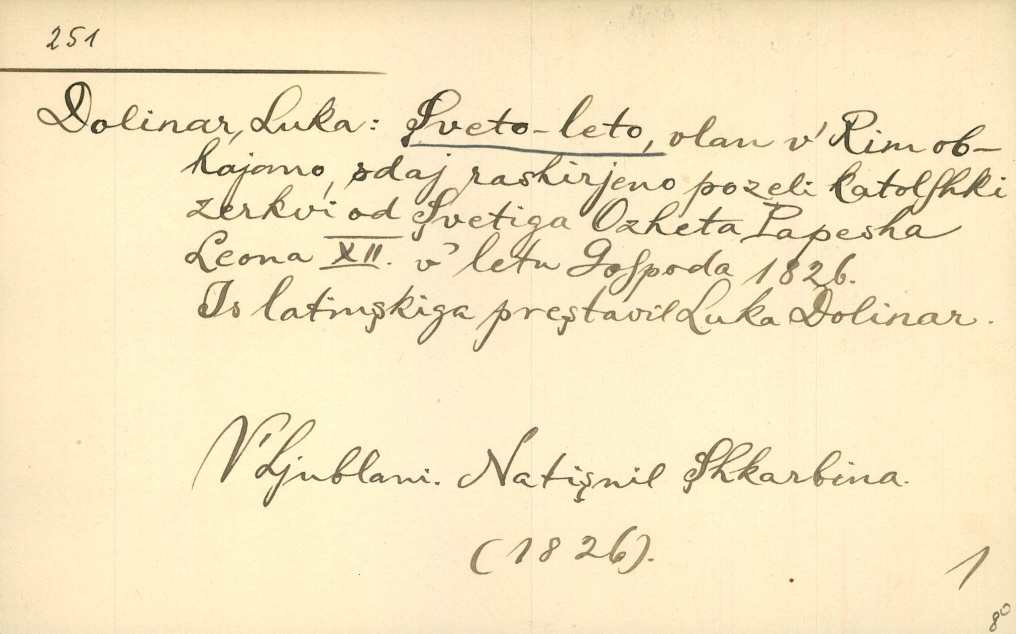 251
Dolinar, Luka: Şveto-leto, vlani v' Rim ob-
hajano, sdaj rashirjeno po zeli katolſhki
zerkvi od Şvetiga Ozheta Papesha
Leona XII. v' letu Goſpoda 1826.
Is latinşkiga preştavil Luka Dolinar.
V' Ljublani. Natişnil Şhkarbina.
(1826).
1
8º